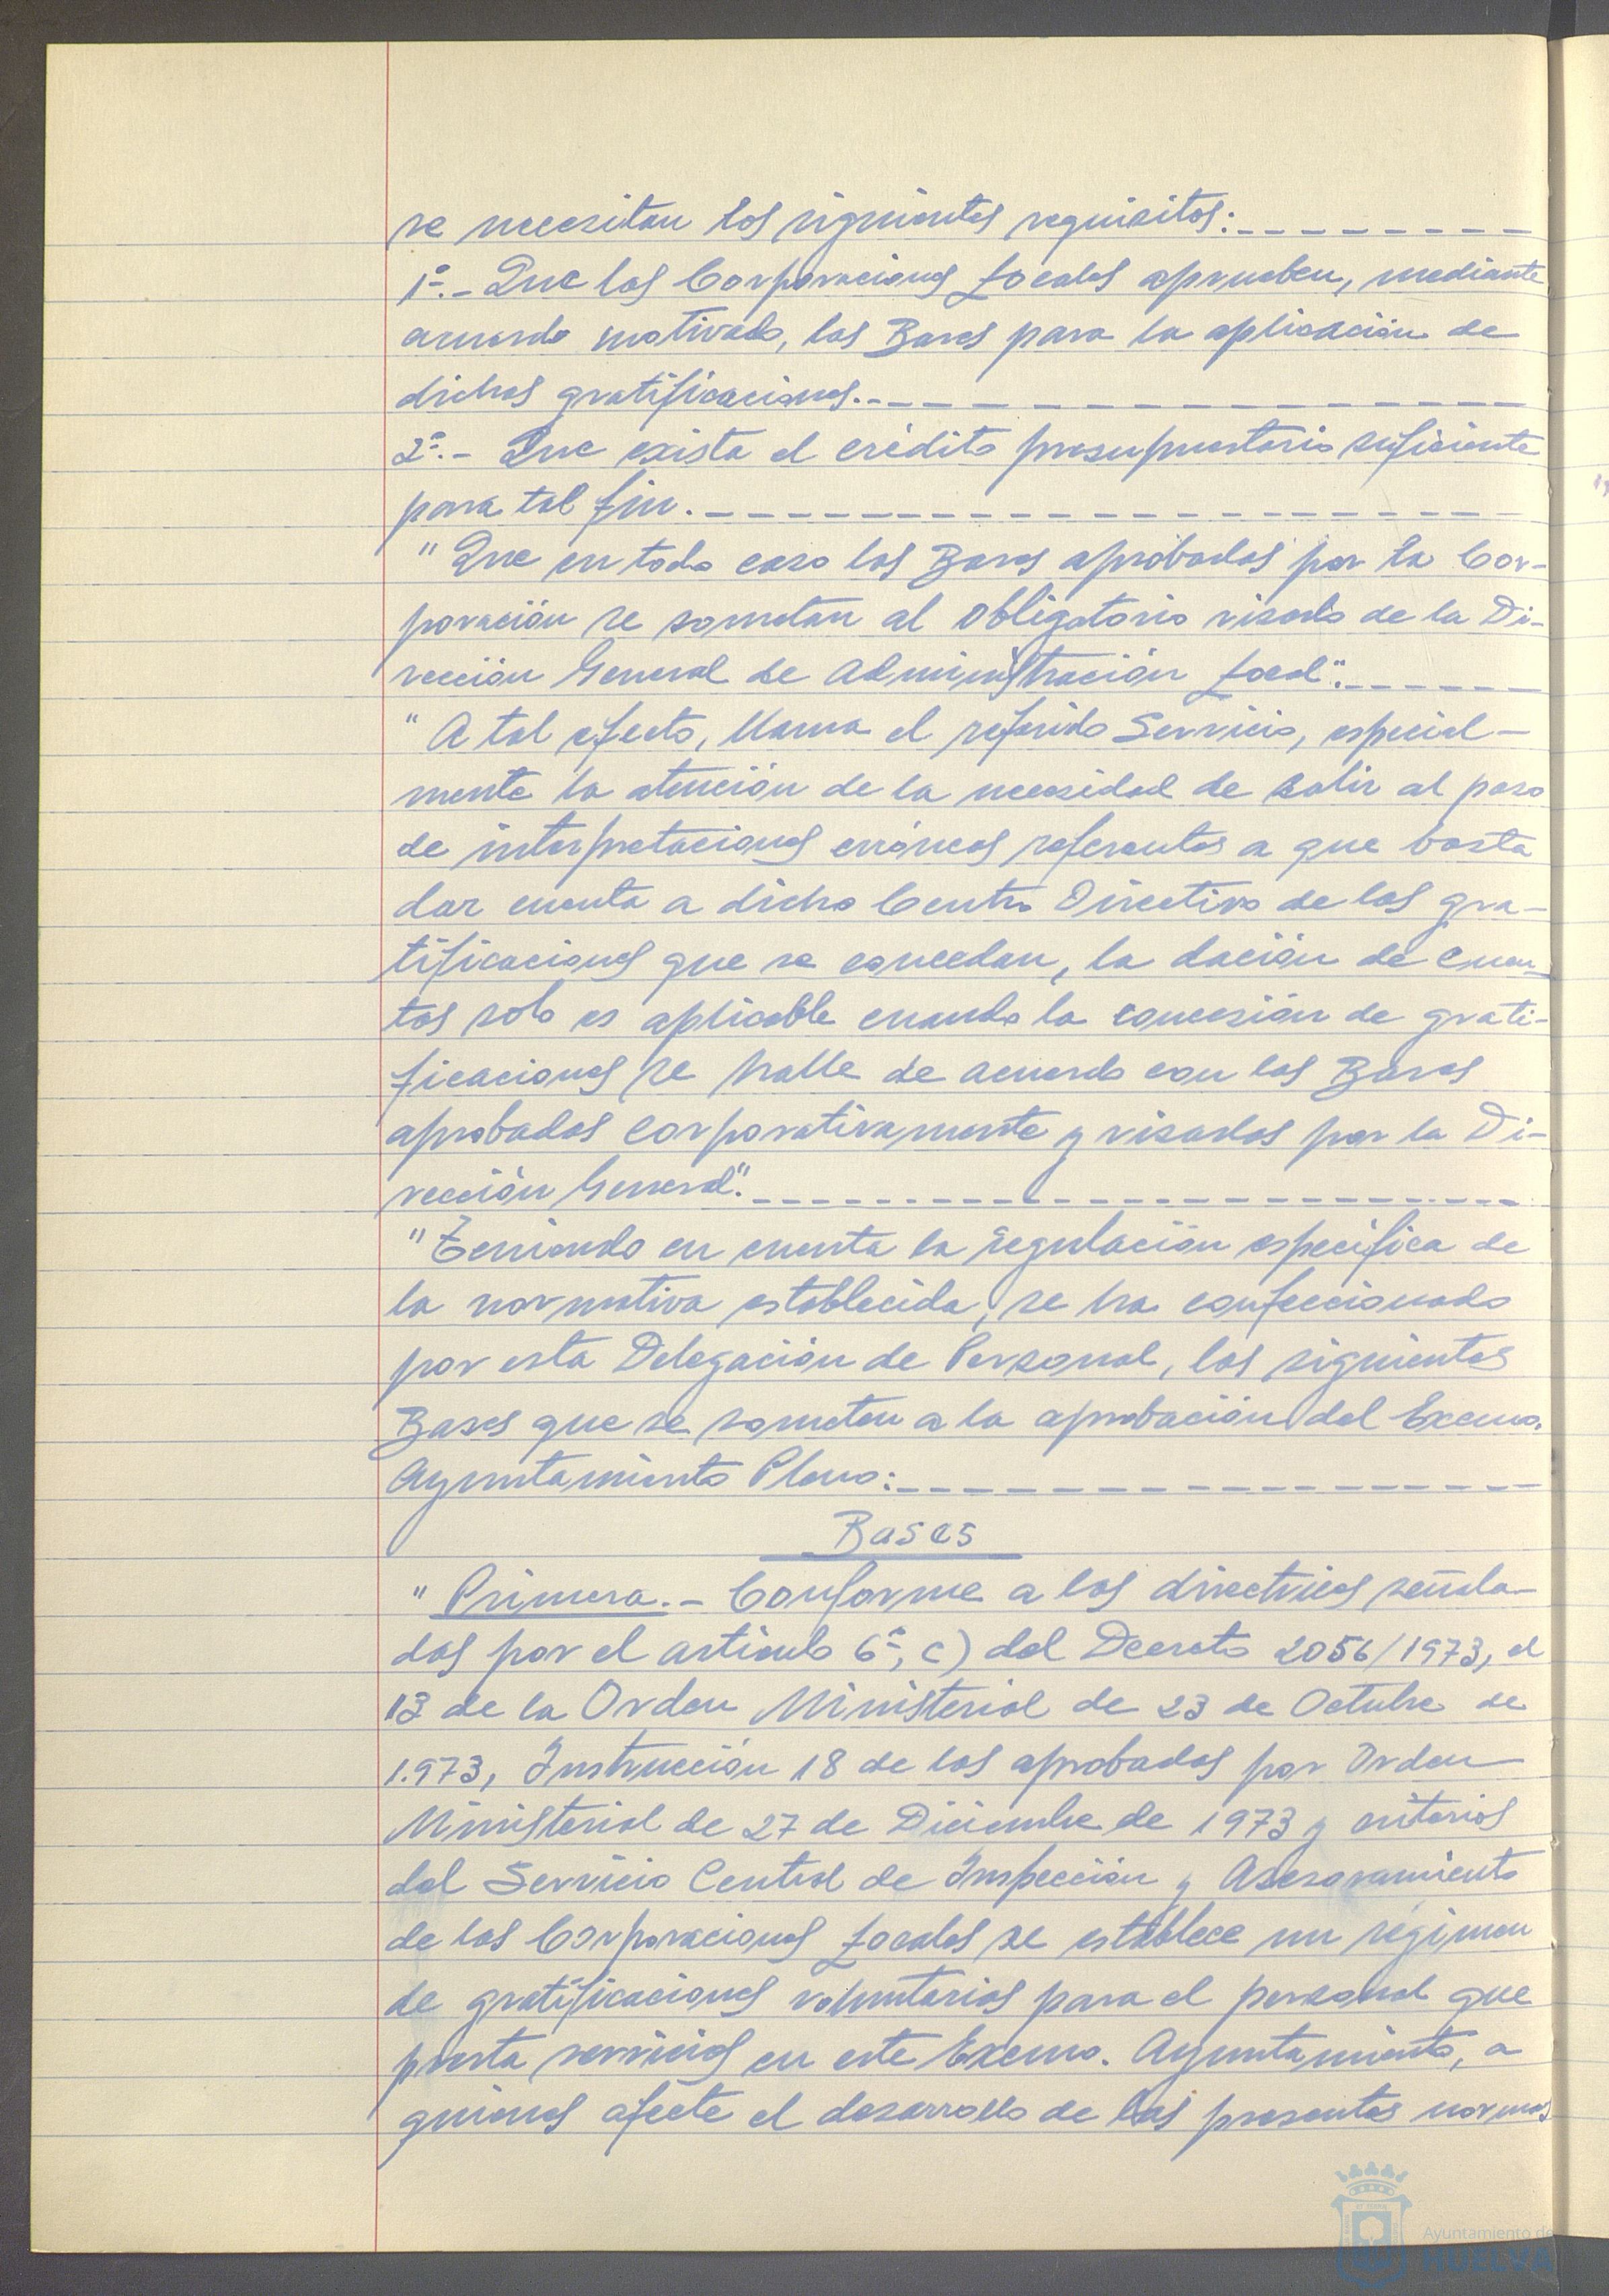 se necesitan los siguientes requisitos:_ _ _ _ _ _ _ _
1º.- Que las Corporaciones Locales aprueben, mediante
acuerdo motivado, las Bases para la aplicación de
dichas gratificaciones.- _ _ _ _ _ _ _ _ _ _ _ _
2º.- Que exista el crédito presupuestario suficiente
para tal fin._ _ _ _ _ _ _ _ _ _ _ _ _ _ _
"Que en todo caso las Bases aprobadas por la Cor-
poración se sometan al obligatorio visado de la Di-
rección General de Administración Local"._ _ _ _ _
"A tal efecto, llama el referido Servicio, especial-
mente la atención de la necesidad de salir al paso
de interpretaciones erróneas referentes a que basta
dar cuenta a dicho Centro Directivo de las gra-
tificaciones que se concedan, la dación de cuen-
tas solo es aplicable cuando la concesión de grati-
ficaciones se halle de acuerdo con las Bases
aprobadas corporativamente y visadas por la Di-
rección General"._ _ _ _ _ _ _ _ _ _ _ _ _ _
"Teniendo en cuenta la regulación específica de
la normativa establecida, se ha confeccionado
por esta Delegación de Personal, las siguientes
Bases que se someten a la aprobación del Excmo.
Ayuntamiento Pleno:_ _ _ _ _ _ _ _ _ _ _ _
Bases
"Primera.- Conforme a las directrices señala-
das por el artículo 6º, c) del Decreto 2056/1973, el
13 de la Orden Ministerial de 23 de Octubre de
1.973, Instrucción 18 de las aprobadas por Orden
Ministerial de 27 de Diciembre de 1973 y criterios
del Servicio Central de Inspección y Asesoramiento
de las Corporaciones Locales se establece un régimen
de gratificaciones voluntarias para el personal que
presta servicios en este Excmo. Ayuntamiento, a
quienes afecte el desarrollo de las presentes normas
Ayuntamiento de
HUELVA